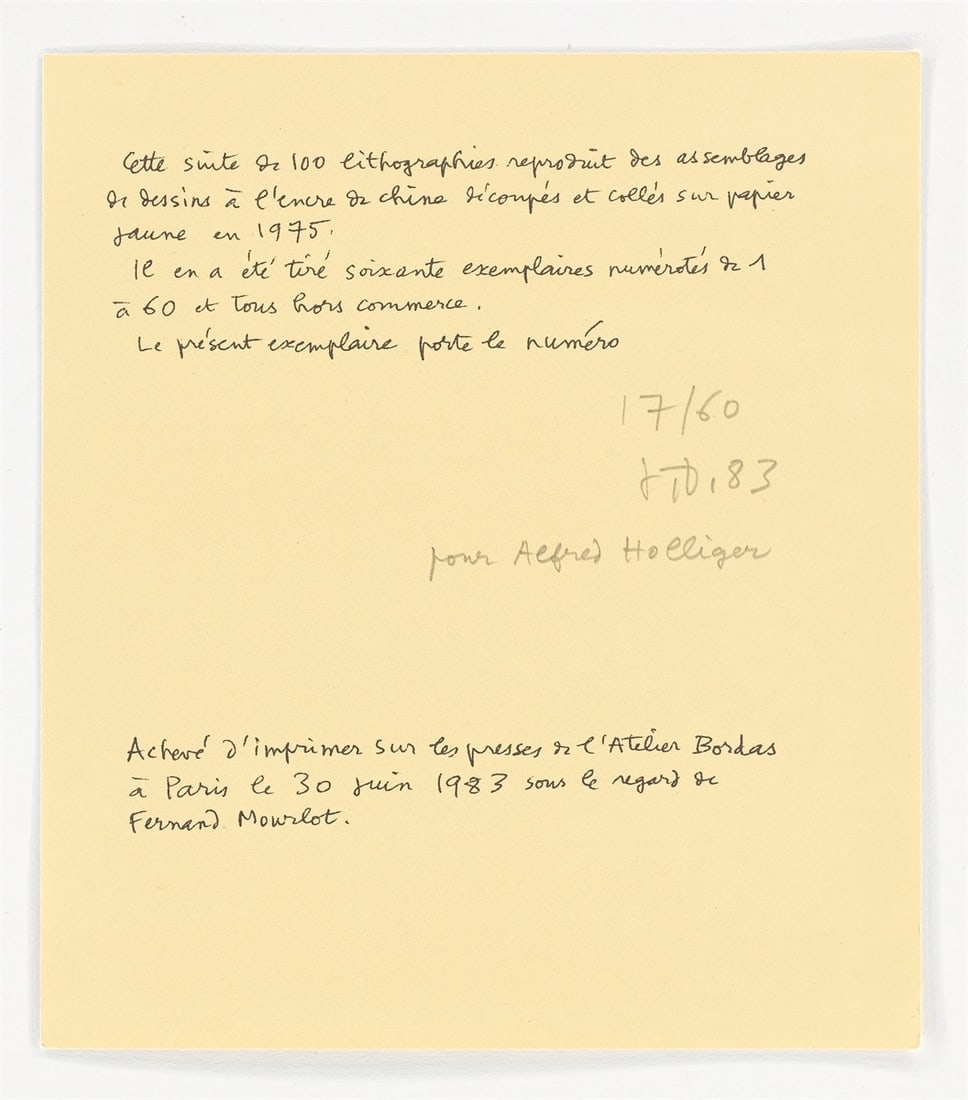 Cette suite de 100 lithographies reproduit des assemblages
de dessins à l'encre de chine découpés et collés sur papier
jaune en 1975.
Il en a été tiré soixante exemplaires numérotés de 1
à 60 et tous hors commerce.
Le présent exemplaire porte le numéro
17/60
J.D. 83
pour Alfred Holliger
Achevé d'imprimer sur les presses de l'Atelier Bordas
à Paris le 30 juin 1983 sous le regard de
Fernand Mourlot.